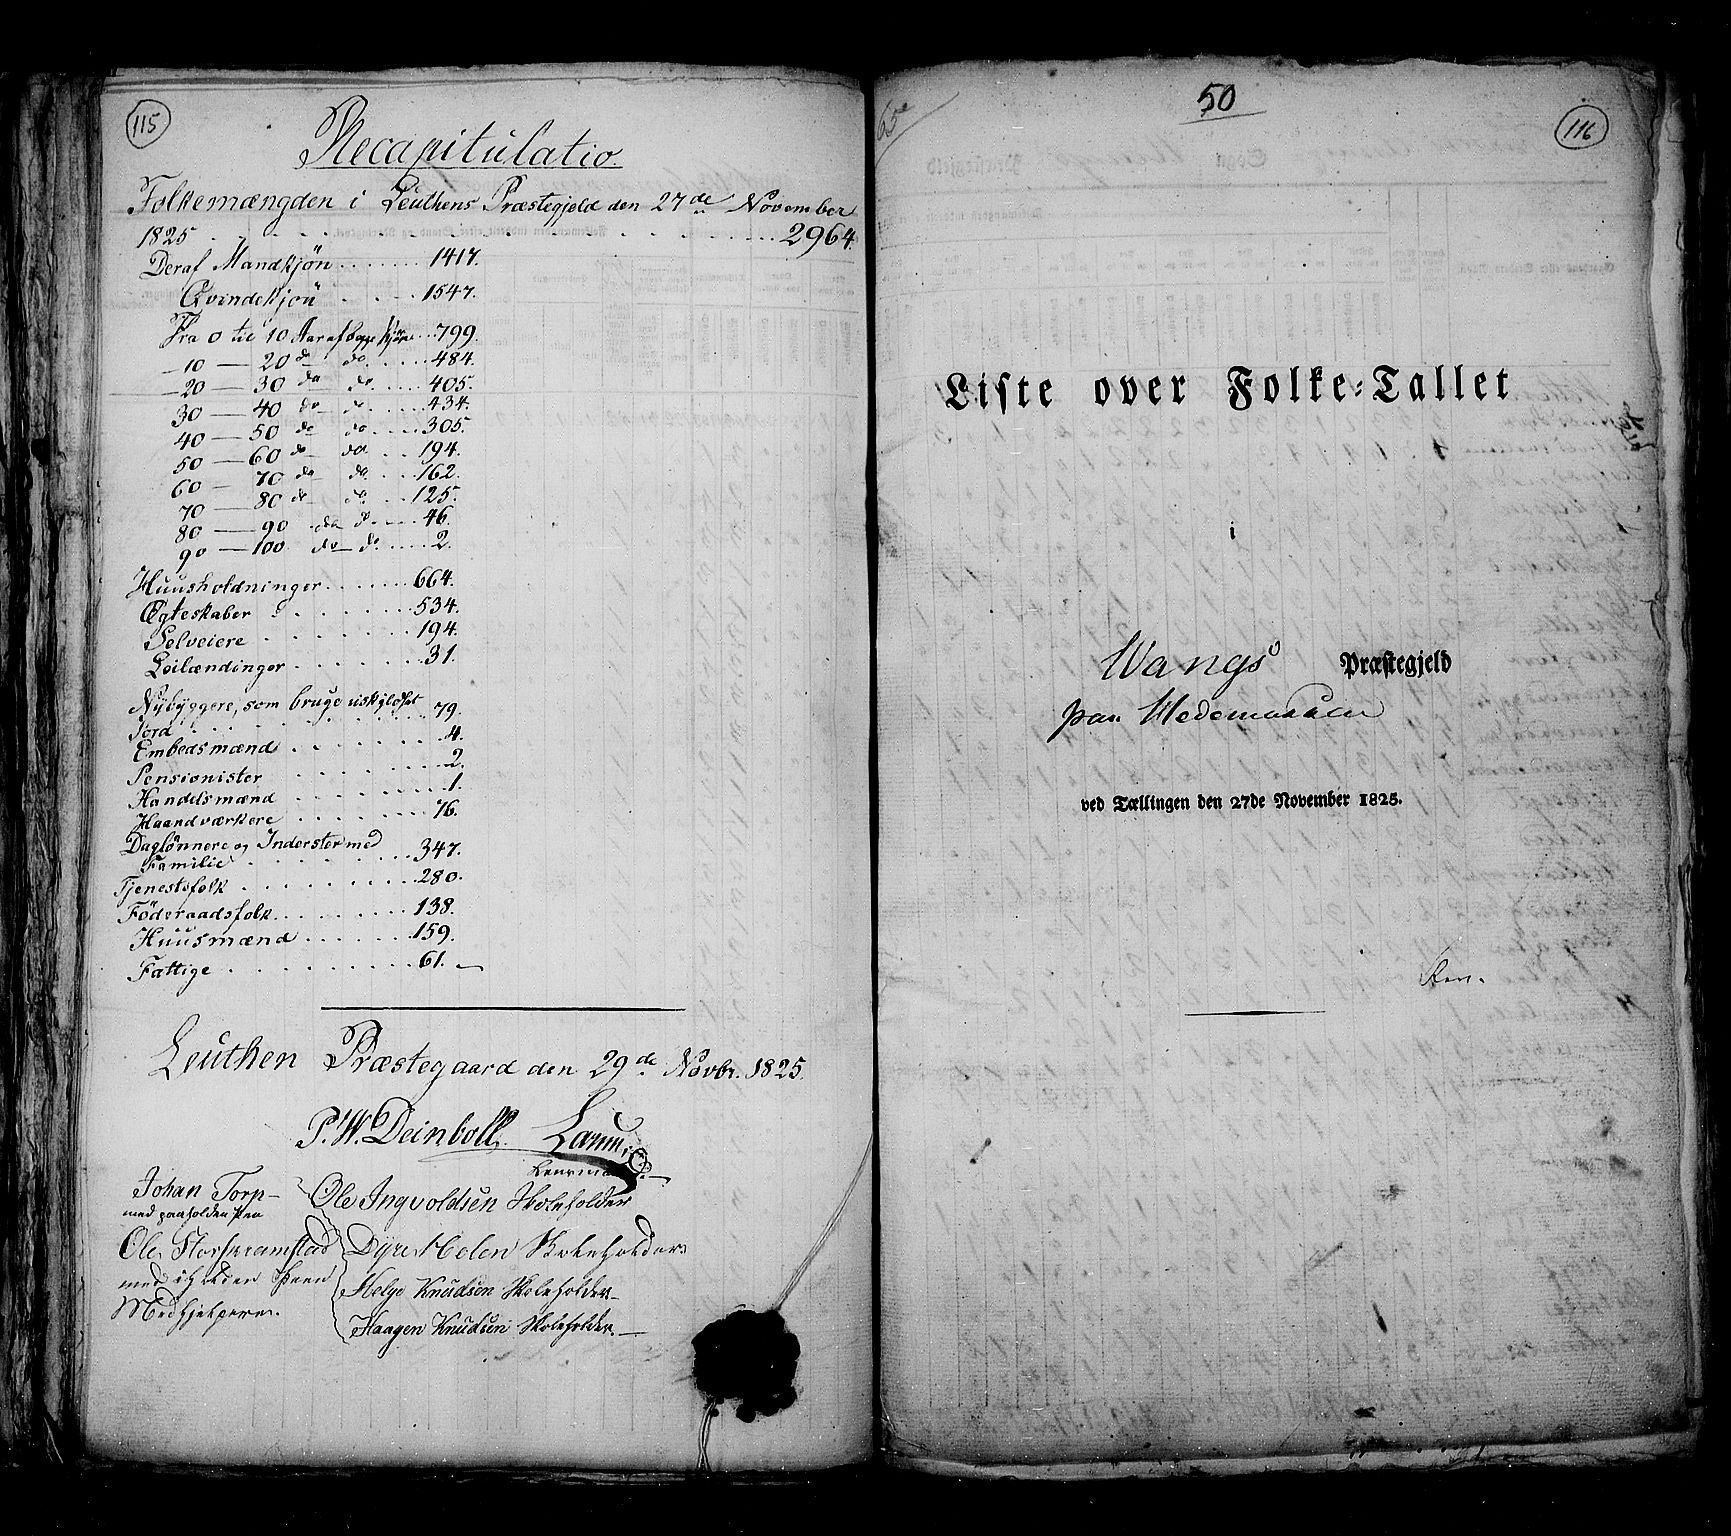 115
Recapitulatio.
Folkemængden i Leuthens Præstegjeld den 27de November
1825 . . . 2964.
Deraf Mandkjön . . . 1417.
Qvindekjön . . . 1547.
Fra 0 til 10 Aar af begge Kjön . . . 799.
10 — 20 do do . . . 484.
20 — 30 do do . . . 405.
30 — 40 do do . . . 434.
40 — 50 do do . . . 305.
50 — 60 do do . . . 194.
60 — 70 do do . . . 162.
70 — 80 do do . . . 125.
80 — 90 do do . . . 46.
90 — 100 do do . . . 2.
Huusholdninger . . . 664.
Ægteskaber . . . 534.
Selveiere . . . 194.
Leilændinger . . . 31.
Nybyggere, som bruge uskyldsat
Jord . . . 79.
Embedsmænd . . . 4.
Pensionister . . . 2.
Handelsmænd . . . 1.
Haandværkere . . . 76.
Daglönnere og Inderster med
Familie . . . 347.
Tjenestefolk . . . 280.
Föderaadsfolk . . . 138.
Huusmænd . . . 159.
Fattige . . . 61.
Leuthen Præstegaard den 29de Novbr. 1825.
P. W. Deinboll.
Lensmand
Johan Torp
med paaholden Pen
Ole Storhramstad
med iholden Pen
Medhjelpere.
Ole Ingvoldsen Skoleholder
Dyre Melen Skoleholder
Helge Knudsen Skoleholder
Haagen Knudsen Skoleholder.
65
50
116
Liste over Folke-Tallet
i
Wangs Præstegjeld
paa Hedemarken
ved Tællingen den 27de November 1825.